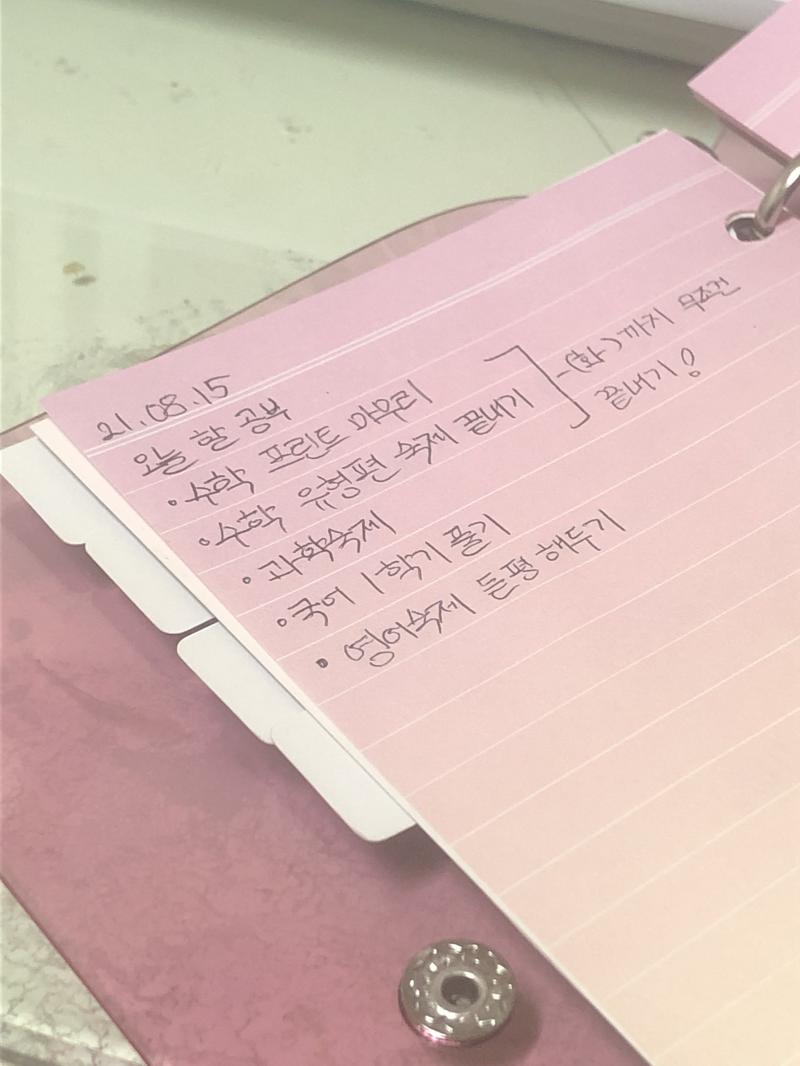 21.08.15
오늘 할 공부
• 수학 프린트 마무리
• 수학 유형편 숙제 끝내기
-(화)까지 무조건
끝내기!
• 과학숙제
• 국어 1학기 풀기
• 영어숙제 듣평 해두기